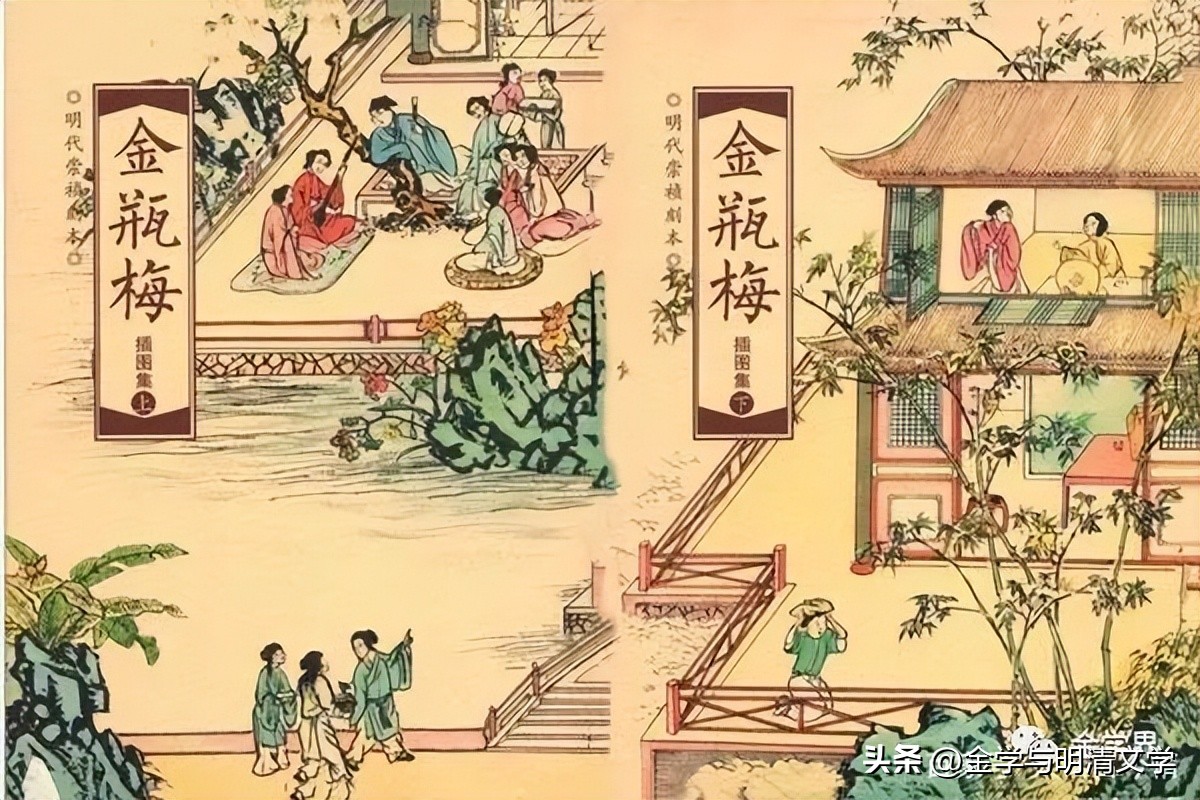 明代崇禎劇本
金瓶梅
插图集
上
明代崇禎劇本
金瓶梅
插图集
下
头条 @金学与明清文学